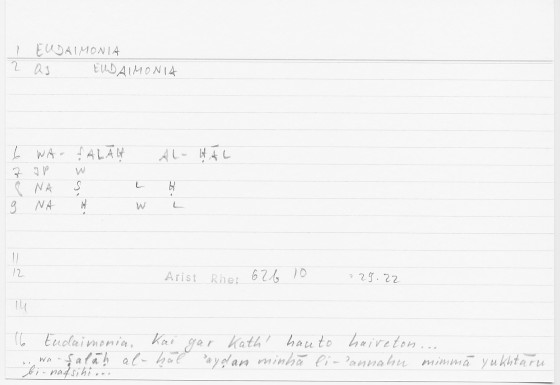 1 EUDAIMONIA
2 as EUDAIMONIA
6 WA-ṢALĀḤ AL-ḤĀL
7 IP W
8 NA Ṣ L Ḥ
9 NA Ḥ W L
11
12 Arist Rhet 62b 10 29.22
14
16 Eudaimonia. Kai gar kath' hauto haireton...
..wa-ṣalāḥ al-ḥāl 'ayḍan minhā li-'annahu mimmā yukhtāru
bi-nafsihi...